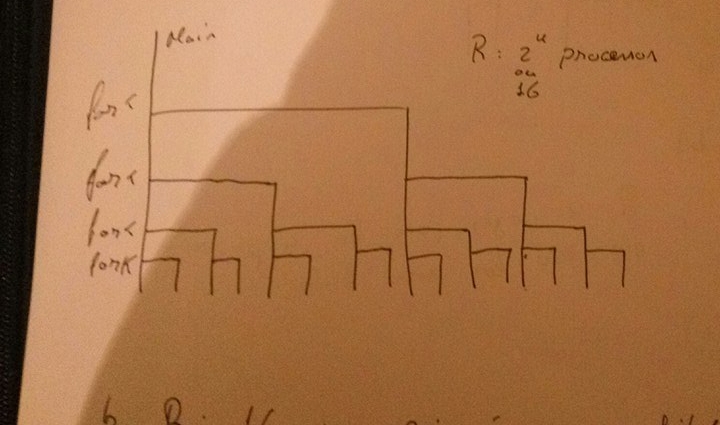 Main
R: 2⁴ processos
ou
16
fork
fork
fork
fork
b R: 16